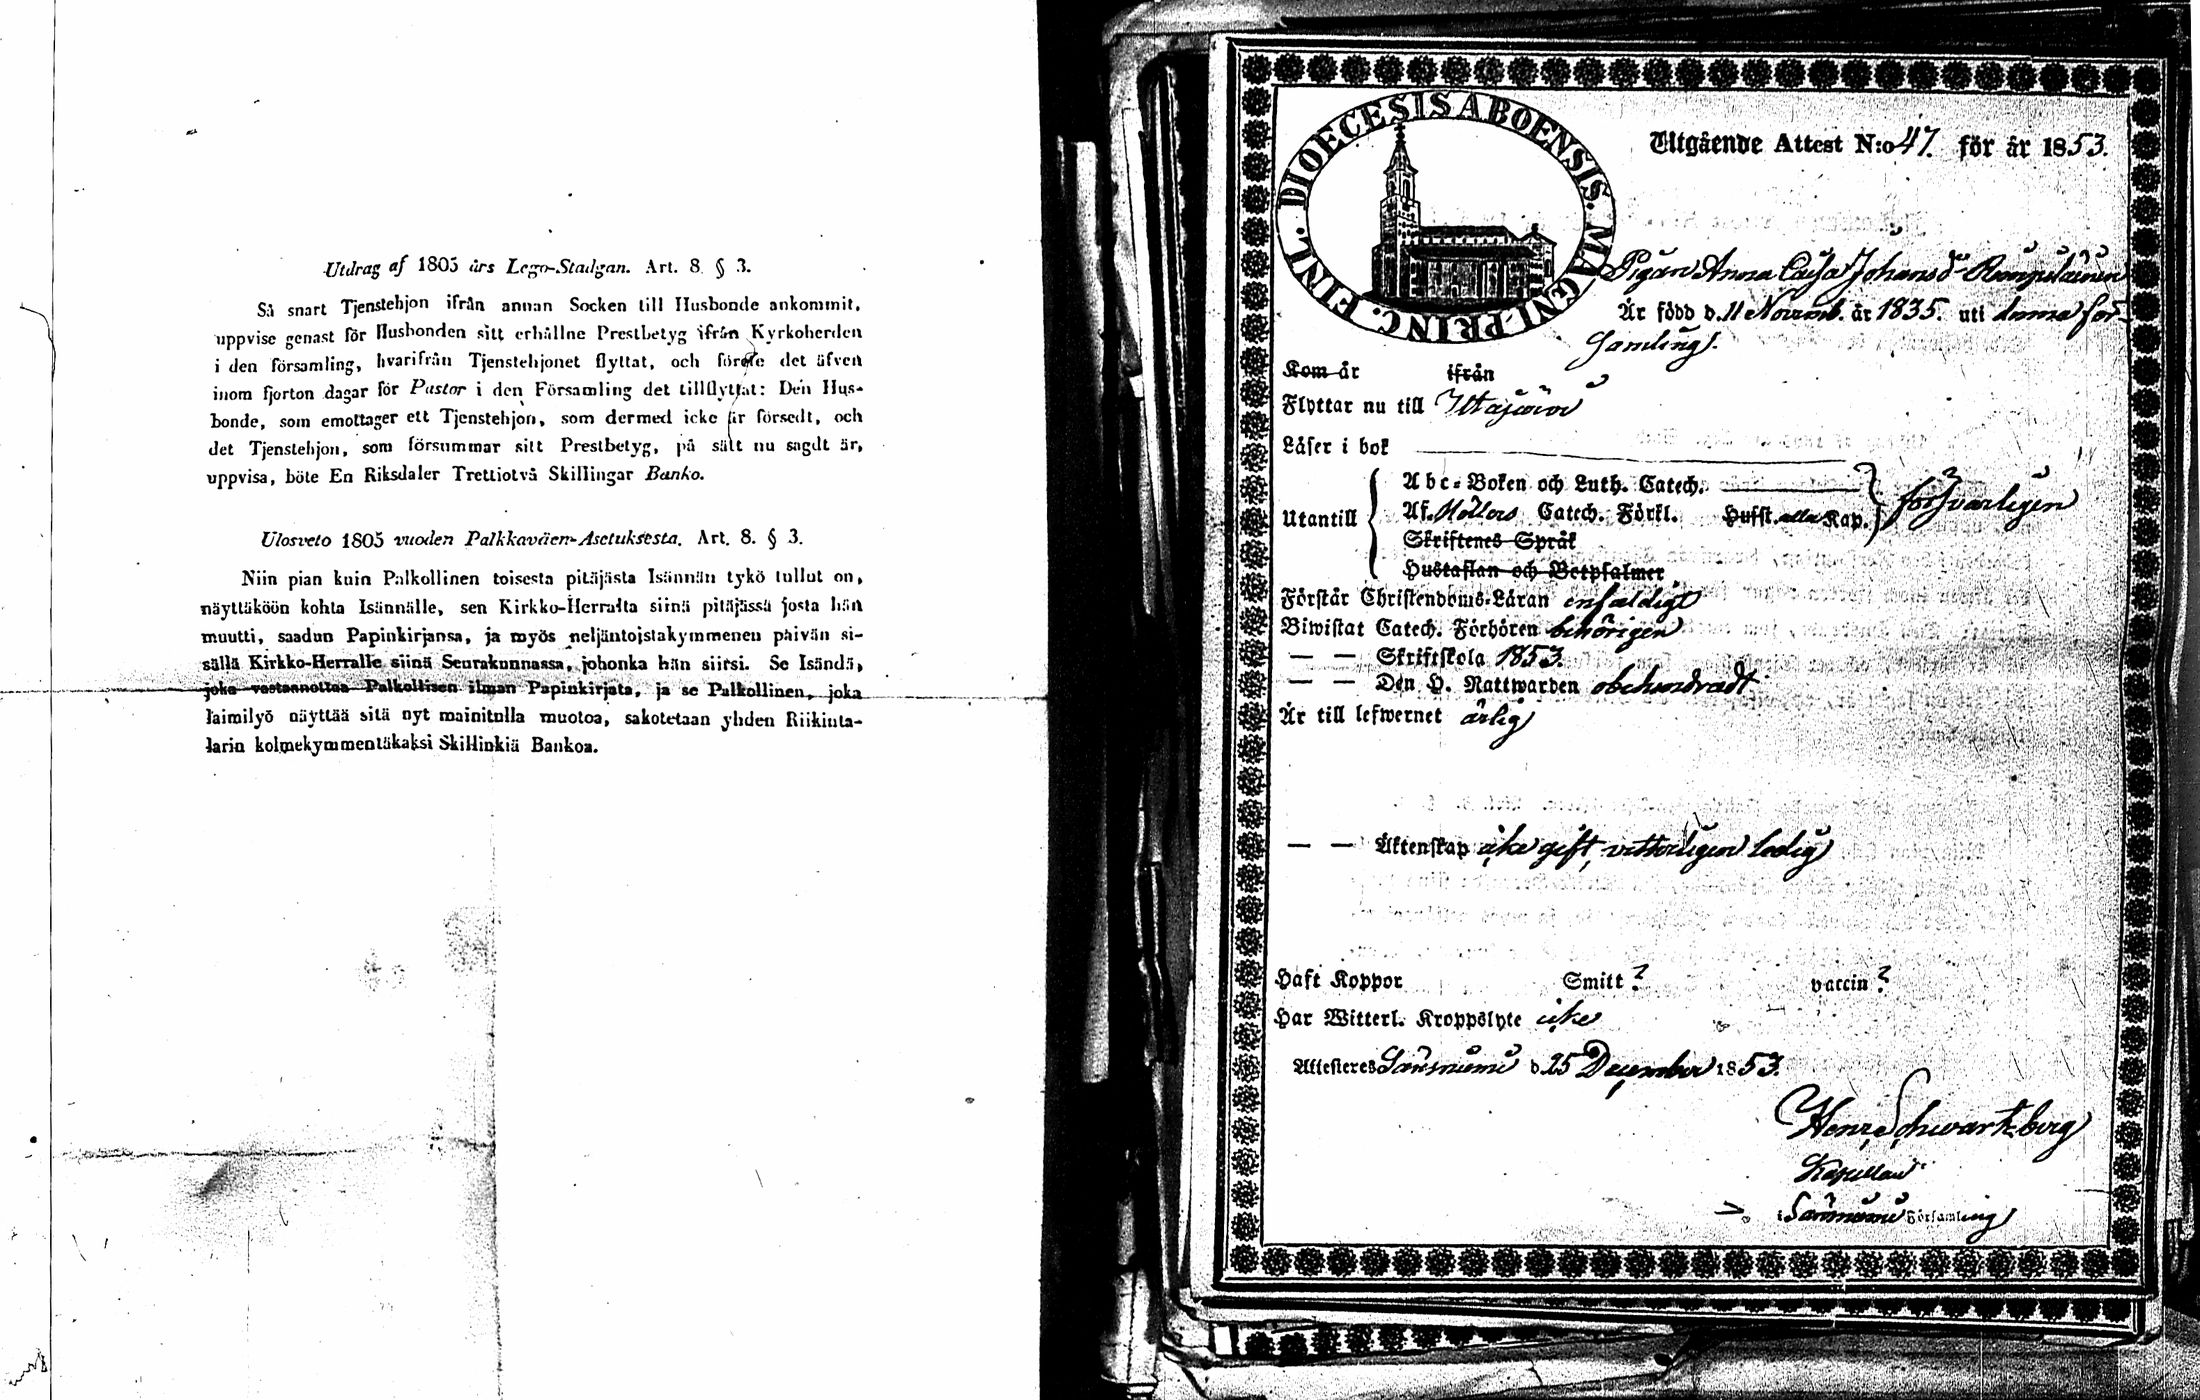 Utdrag af 1805 års Lego-Stadgan. Art. 8 § 3.
Så snart Tjenstehjon ifrån annan Socken till Husbonde ankommit,
uppvise genast för Husbonden sitt erhållne Prestbetyg ifrån Kyrkoherden
i den församling, hvarifrån Tjenstehjonet flyttat, och förete det äfven
inom fjorton dagar för Pastor i den Församling det tillflyttat: Den Hus-
bonde, som emottager ett Tjenstehjon, som dermed icke är försedt, och
det Tjenstehjon, som försummar sitt Prestbetyg, på sätt nu sagdt är,
uppvisa, böte En Riksdaler Trettiotvå Skillingar Banko.
Ulosveto 1805 vuoden Palkkaväen-Asetuksesta. Art. 8. § 3.
Niin pian kuin Palkollinen toisesta pitäjästa Isännän tykö tullut on,
näyttäköön kohta Isännälle, sen Kirkko-Herralta siinä pitäjässä josta hän
muutti, saadun Papinkirjansa, ja myös neljäntoistakymmenen päivän si-
sällä Kirkko-Herralle siinä Seurakunnassa, johonka hän siirsi. Se Isändä,
joka vastaanottaa Palkollisen ilman Papinkirjata, ja se Palkollinen, joka
laimilyö näyttää sitä nyt mainitulla muotoa, sakotetaan yhden Riikinta-
larin kolmekymmentäkaksi Skillinkiä Bankoa.
DIOECESIS ABOENSIS. MAGNI PRINC. FINL.
Utgående Attest N:o 47. för år 1853.
Pigan Anna Caisa Johansdr
Är född d. 11 Novemb. år 1835. uti denna för-
samling.
Kom år ifrån
Flyttar nu till
Läser i bok
Abc-Boken och Luth. Catech.
Utantill Af. Möllers Catech. Förkl. Husst. alla Kap. försvarligen
Skriftenes Språk
Hustaflan och Botpsalmer
Förstår Christendoms-Läran enfaldigt
Biwistat Catech. Förhören behörigen
— — Skriftskola 1853.
— — Den H. Nattwarden obehindradt
Är till lefwernet ärlig
— — Äktenskap icke gift, vetterligen ledig
Haft Koppor Smitt? vaccin?
Har Witterl. Kroppslyte icke
Attesteres d. 25 December 1853.
Henr. Schwartzberg
Kapellan
i Församling